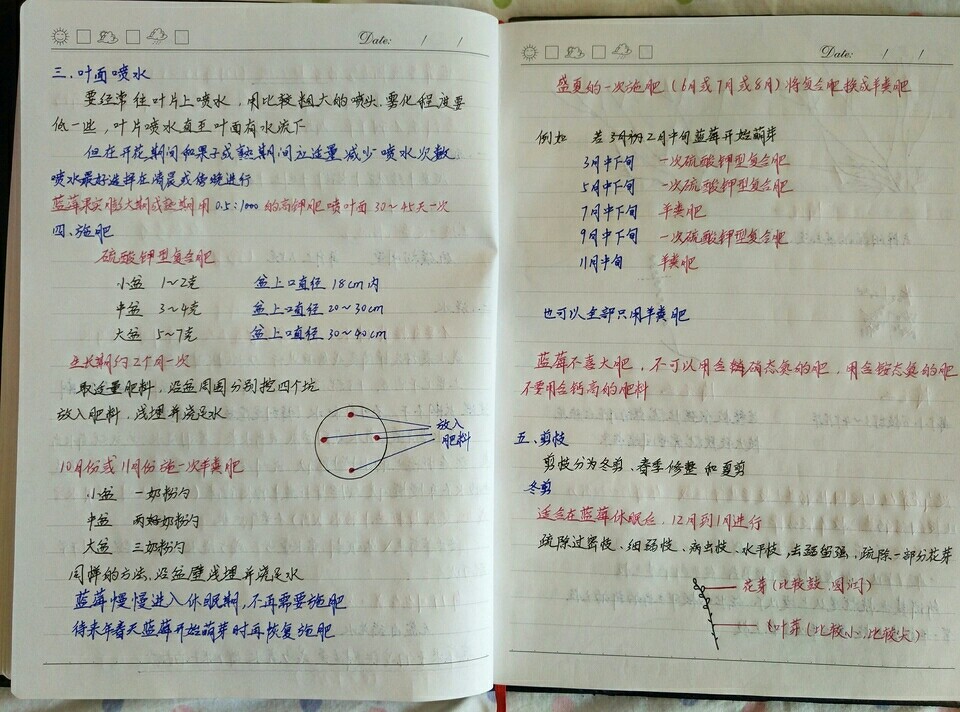 Date: / /
三.叶面喷水
要经常往叶片上喷水，用比较粗大的喷头.雾化程度要
低一些，叶片喷水直至叶面有水流下
但在开花期间和果子成熟期间应适量减少喷水次数
喷水最好选择在清晨或傍晚进行
蓝莓果实膨大期成熟期用0.5:1000的高钾肥喷叶面30～45天一次
四、施肥
硫酸钾型复合肥
小盆 1～2克 盆上口直径18cm内
中盆 3～4克 盆上口直径20～30cm
大盆 5～7克 盆上口直径30～40cm
生长期约2个月一次
取适量肥料，沿盆周围分别挖四个坑
放入肥料，浅埋并浇足水
放入
肥料
10月份或11月份施一次羊粪肥
小盆 一奶粉勺
中盆 两奶粉勺
大盆 三奶粉勺
同样的方法，沿盆壁浅埋并浇足水
蓝莓慢慢进入休眠期，不再需要施肥
待来年春天蓝莓开始萌芽时再恢复施肥
Date: / /
盛夏的一次施肥（6月或7月或8月）将复合肥换成羊粪肥
例如 若2月中旬蓝莓开始萌芽
3月中下旬 一次硫酸钾型复合肥
5月中下旬 一次硫酸钾型复合肥
7月中下旬 羊粪肥
9月中下旬 一次硫酸钾型复合肥
11月中旬 羊粪肥
也可以全部只用羊粪肥
蓝莓不喜大肥，不可以用含硝态氮的肥，用含铵态氮的肥
不要用含钙高的肥料
五、剪枝
剪枝分为冬剪、春季修整和夏剪
冬剪
适合在蓝莓休眠后，12月到1月进行
疏除过密枝、细弱枝、病虫枝、水平枝，去弱留强，疏除一部分花芽
花芽（比较鼓、圆润）
叶芽（比较小、比较尖）